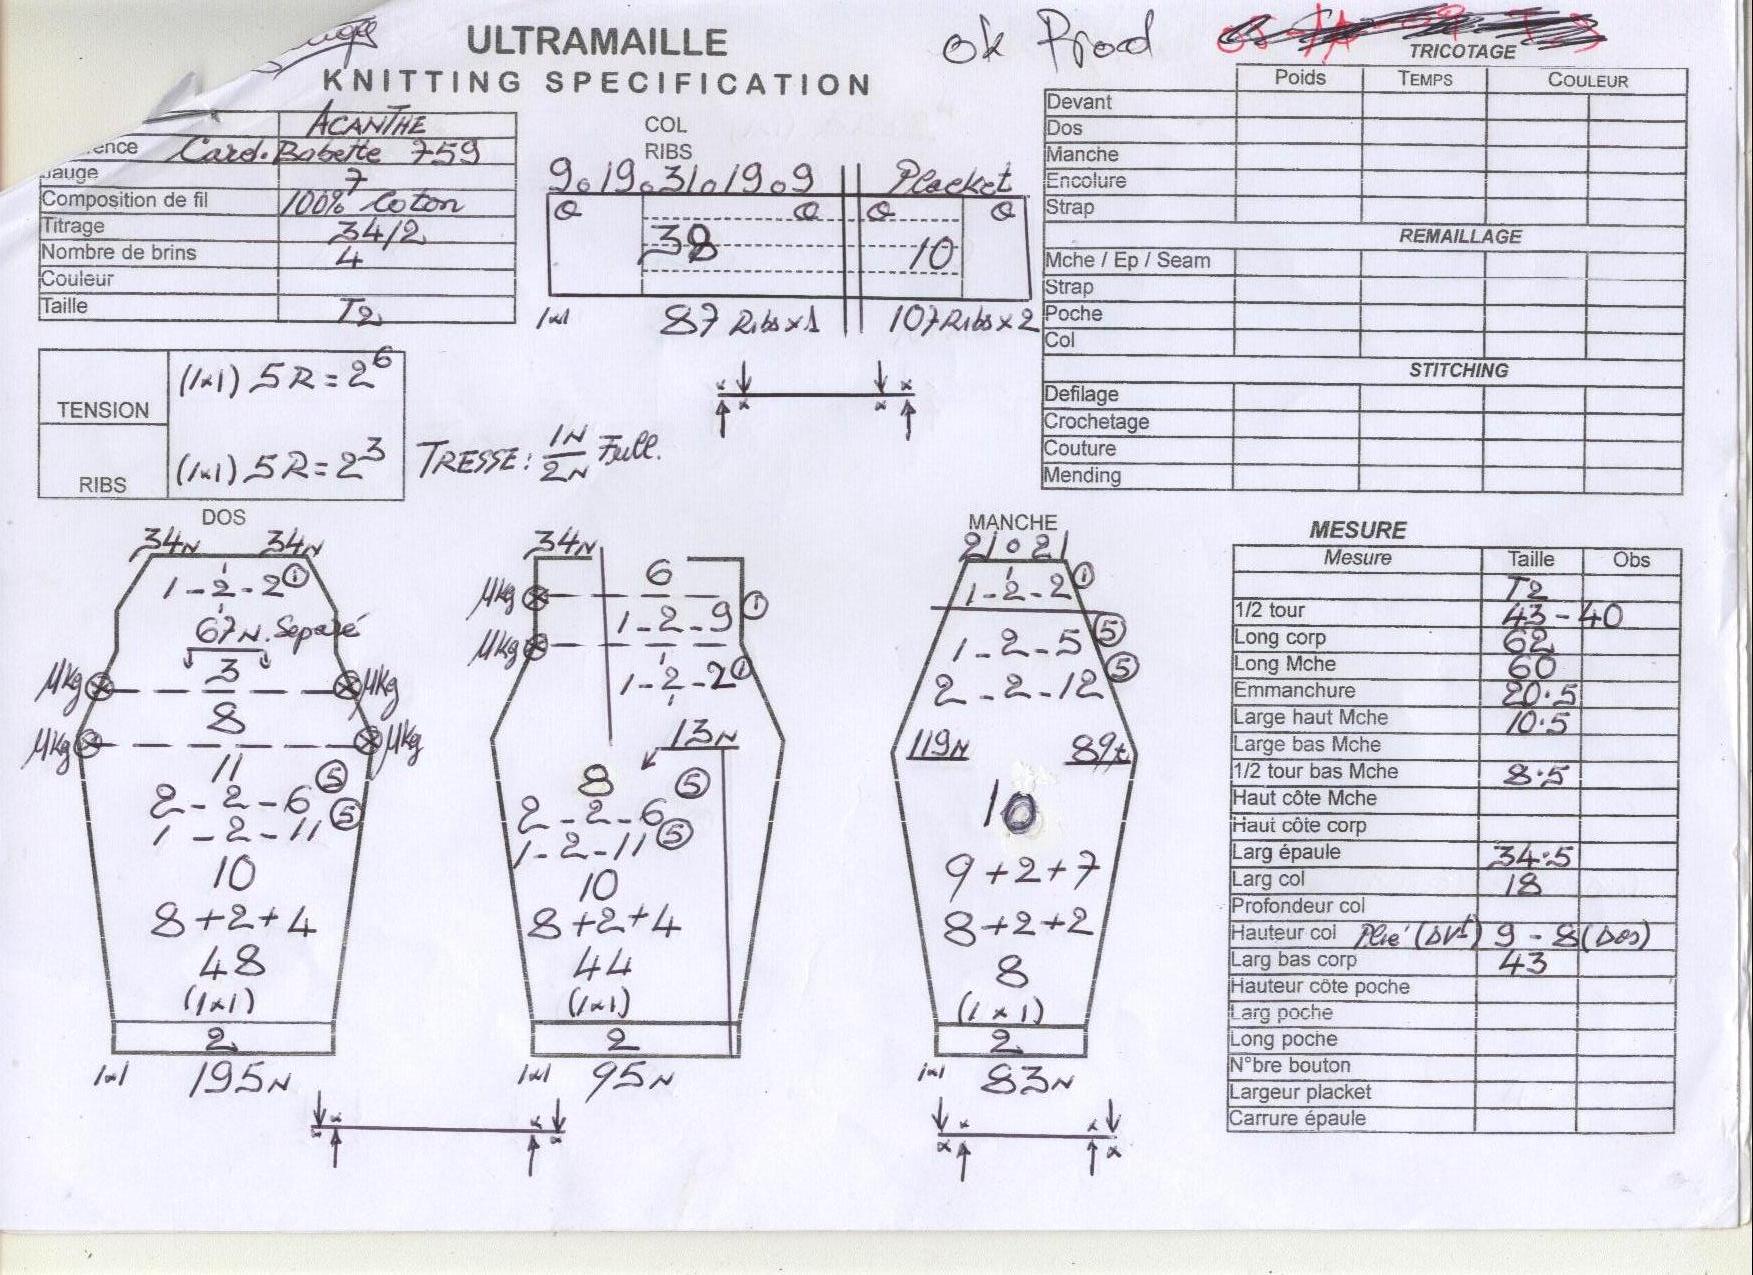 ULTRAMAILLE
KNITTING SPECIFICATION
ok Prod
ACANTHE
ence Card. Babette 759
Jauge 7
Composition de fil 100% Coton
Titrage 34/2
Nombre de brins 4
Couleur
Taille T2
COL
RIBS
9o19o31o19o9 Placket
38 10
1x1 87 Ribs x 1 107 Ribs x 2
TENSION (1x1) 5R = 2⁶
RIBS (1x1) 5R = 2³
TRESSE: 1N/2N Full.
TRICOTAGE
Poids TEMPS COULEUR
Devant
Dos
Manche
Encolure
Strap
REMAILLAGE
Mche / Ep / Seam
Strap
Poche
Col
STITCHING
Defilage
Crochetage
Couture
Mending
DOS
34N 34N
1-2-2 ①
67N. Separé
3
Mkg Mkg
8
Mkg Mkg
11
2-2-6 ⑤
1-2-11 ⑤
10
8+2+4
48
(1x1)
2
1x1 195N
34N
6
Mkg
1-2-9 ①
Mkg
1-2-2 ①
13N
8
2-2-6 ⑤
1-2-11 ⑤
10
8+2+4
44
(1x1)
2
1x1 95N
MANCHE
21o21
1-2-2 ①
1-2-5 ⑤
2-2-12 ⑤
119N 89t
10
9+2+7
8+2+2
8
(1x1)
2
1x1 83N
MESURE
Mesure Taille Obs
T2
1/2 tour 43-40
Long corp 62
Long Mche 60
Emmanchure 20.5
Large haut Mche 10.5
Large bas Mche
1/2 tour bas Mche 8.5
Haut côte Mche
Haut côte corp
Larg épaule 34.5
Larg col 18
Profondeur col
Hauteur col Plié (DVt) 9 - 8 (Dos)
Larg bas corp 43
Hauteur côte poche
Larg poche
Long poche
N°bre bouton
Largeur placket
Carrure épaule